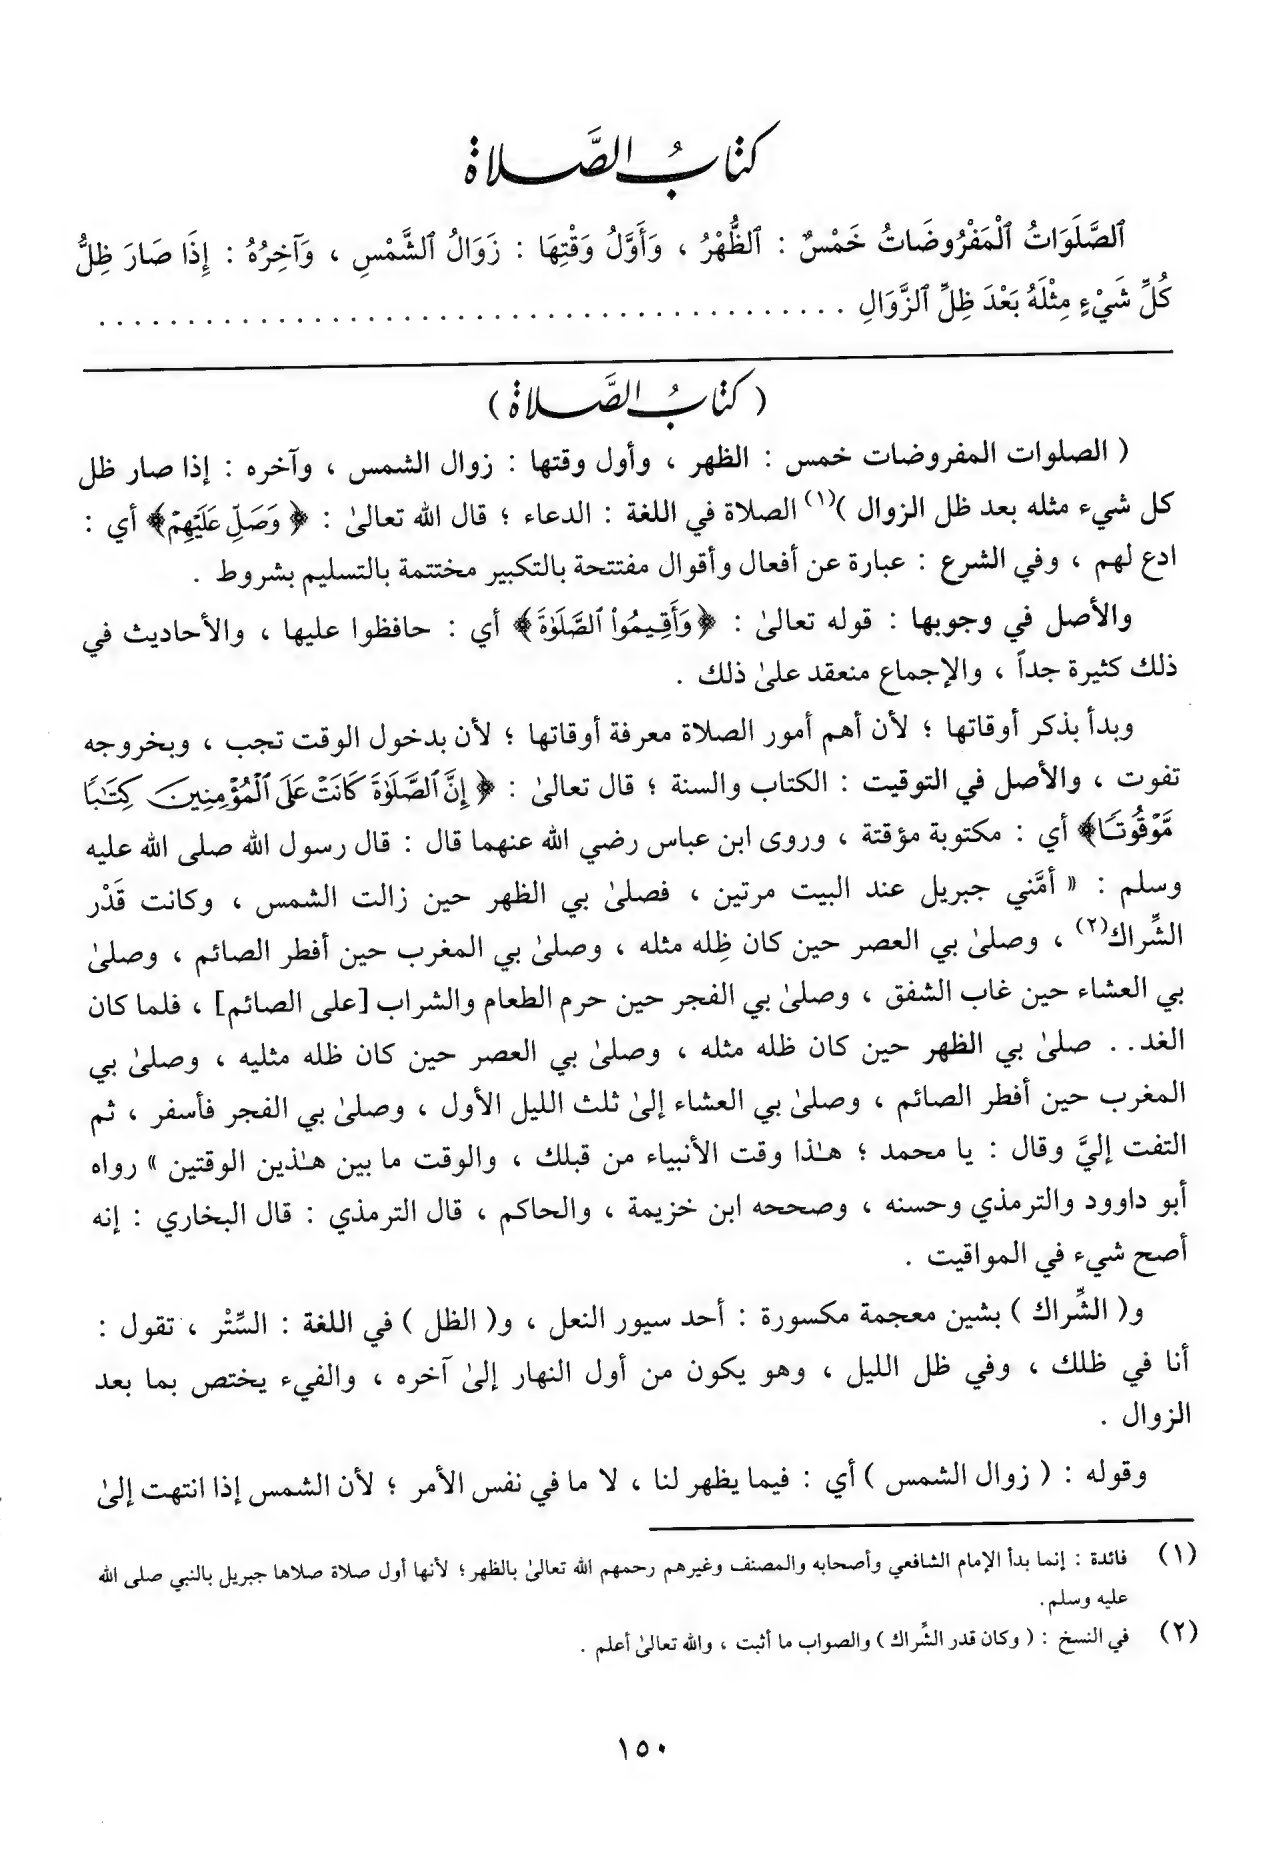 كتاب الصَّلاة
ٱلصَّلَوَاتُ ٱلْمَفْرُوضَاتُ خَمْسٌ : ٱلظُّهْرُ ، وَأَوَّلُ وَقْتِهَا : زَوَالُ ٱلشَّمْسِ ، وَآخِرُهُ : إِذَا صَارَ ظِلُّ
كُلِّ شَيْءٍ مِثْلَهُ بَعْدَ ظِلِّ ٱلزَّوَالِ . . . . . . . . . . . . . . . . . . . . . . . . . . . . . . . . . . . . . . . . .
( كتابُ الصَّلاة )
( الصلوات المفروضات خمس : الظهر ، وأول وقتها : زوال الشمس ، وآخره : إذا صار ظل
كل شيء مثله بعد ظل الزوال )(١) الصلاة في اللغة : الدعاء ؛ قال الله تعالىٰ : ﴿ وَصَلِّ عَلَيْهِمْ﴾ أي :
ادع لهم ، وفي الشرع : عبارة عن أفعال وأقوال مفتتحة بالتكبير مختتمة بالتسليم بشروط .
والأصل في وجوبها : قوله تعالىٰ : ﴿وَأَقِيمُوا۟ ٱلصَّلَوٰةَ﴾ أي : حافظوا عليها ، والأحاديث في
ذلك كثيرة جداً ، والإجماع منعقد علىٰ ذلك .
وبدأ بذكر أوقاتها ؛ لأن أهم أمور الصلاة معرفة أوقاتها ؛ لأن بدخول الوقت تجب ، وبخروجه
تفوت ، والأصل في التوقيت : الكتاب والسنة ؛ قال تعالىٰ : ﴿ إِنَّ ٱلصَّلَوٰةَ كَانَتْ عَلَى ٱلْمُؤْمِنِينَ كِتَـٰبًا
مَّوْقُوتًا﴾ أي : مكتوبة مؤقتة ، وروى ابن عباس رضي الله عنهما قال : قال رسول الله صلى الله عليه
وسلم : « أمَّني جبريل عند البيت مرتين ، فصلىٰ بي الظهر حين زالت الشمس ، وكانت قَدْر
الشِّراك(٢) ، وصلىٰ بي العصر حين كان ظِله مثله ، وصلىٰ بي المغرب حين أفطر الصائم ، وصلىٰ
بي العشاء حين غاب الشفق ، وصلىٰ بي الفجر حين حرم الطعام والشراب [على الصائم] ، فلما كان
الغد.. صلىٰ بي الظهر حين كان ظله مثله ، وصلىٰ بي العصر حين كان ظله مثليه ، وصلىٰ بي
المغرب حين أفطر الصائم ، وصلىٰ بي العشاء إلىٰ ثلث الليل الأول ، وصلىٰ بي الفجر فأسفر ، ثم
التفت إليَّ وقال : يا محمد ؛ هـٰذا وقت الأنبياء من قبلك ، والوقت ما بين هـٰذين الوقتين » رواه
أبو داوود والترمذي وحسنه ، وصححه ابن خزيمة ، والحاكم ، قال الترمذي : قال البخاري : إنه
أصح شيء في المواقيت .
و( الشِّراك ) بشين معجمة مكسورة : أحد سيور النعل ، و( الظل ) في اللغة : السِّتْر ، تقول :
أنا في ظلك ، وفي ظل الليل ، وهو يكون من أول النهار إلىٰ آخره ، والفيء يختص بما بعد
الزوال .
وقوله : ( زوال الشمس ) أي : فيما يظهر لنا ، لا ما في نفس الأمر ؛ لأن الشمس إذا انتهت إلىٰ
(١) فائدة : إنما بدأ الإمام الشافعي وأصحابه والمصنف وغيرهم رحمهم الله تعالىٰ بالظهر؛ لأنها أول صلاة صلاها جبريل بالنبي صلى الله
عليه وسلم.
(٢) في النسخ : ( وكان قدر الشِّراك ) والصواب ما أثبت ، والله تعالىٰ أعلم .
١٥٠